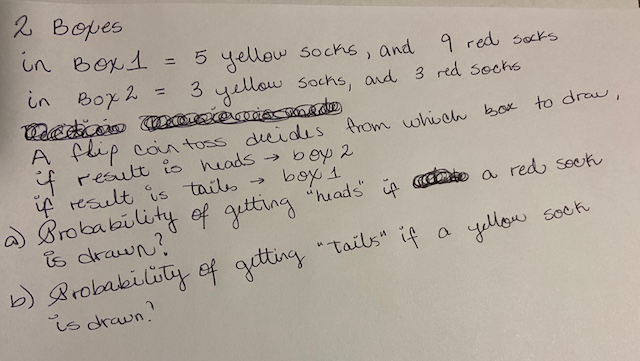 2 Boxes
in Box 1 = 5 yellow socks, and 9 red socks
in Box 2 = 3 yellow socks, and 3 red socks
A flip coin toss decides from which box to draw,
if result is heads → box 2
if result is tails → box 1
a) Probability of getting "heads" if a red sock
is drawn?
b) Probability of getting "tails" if a yellow sock
is drawn?